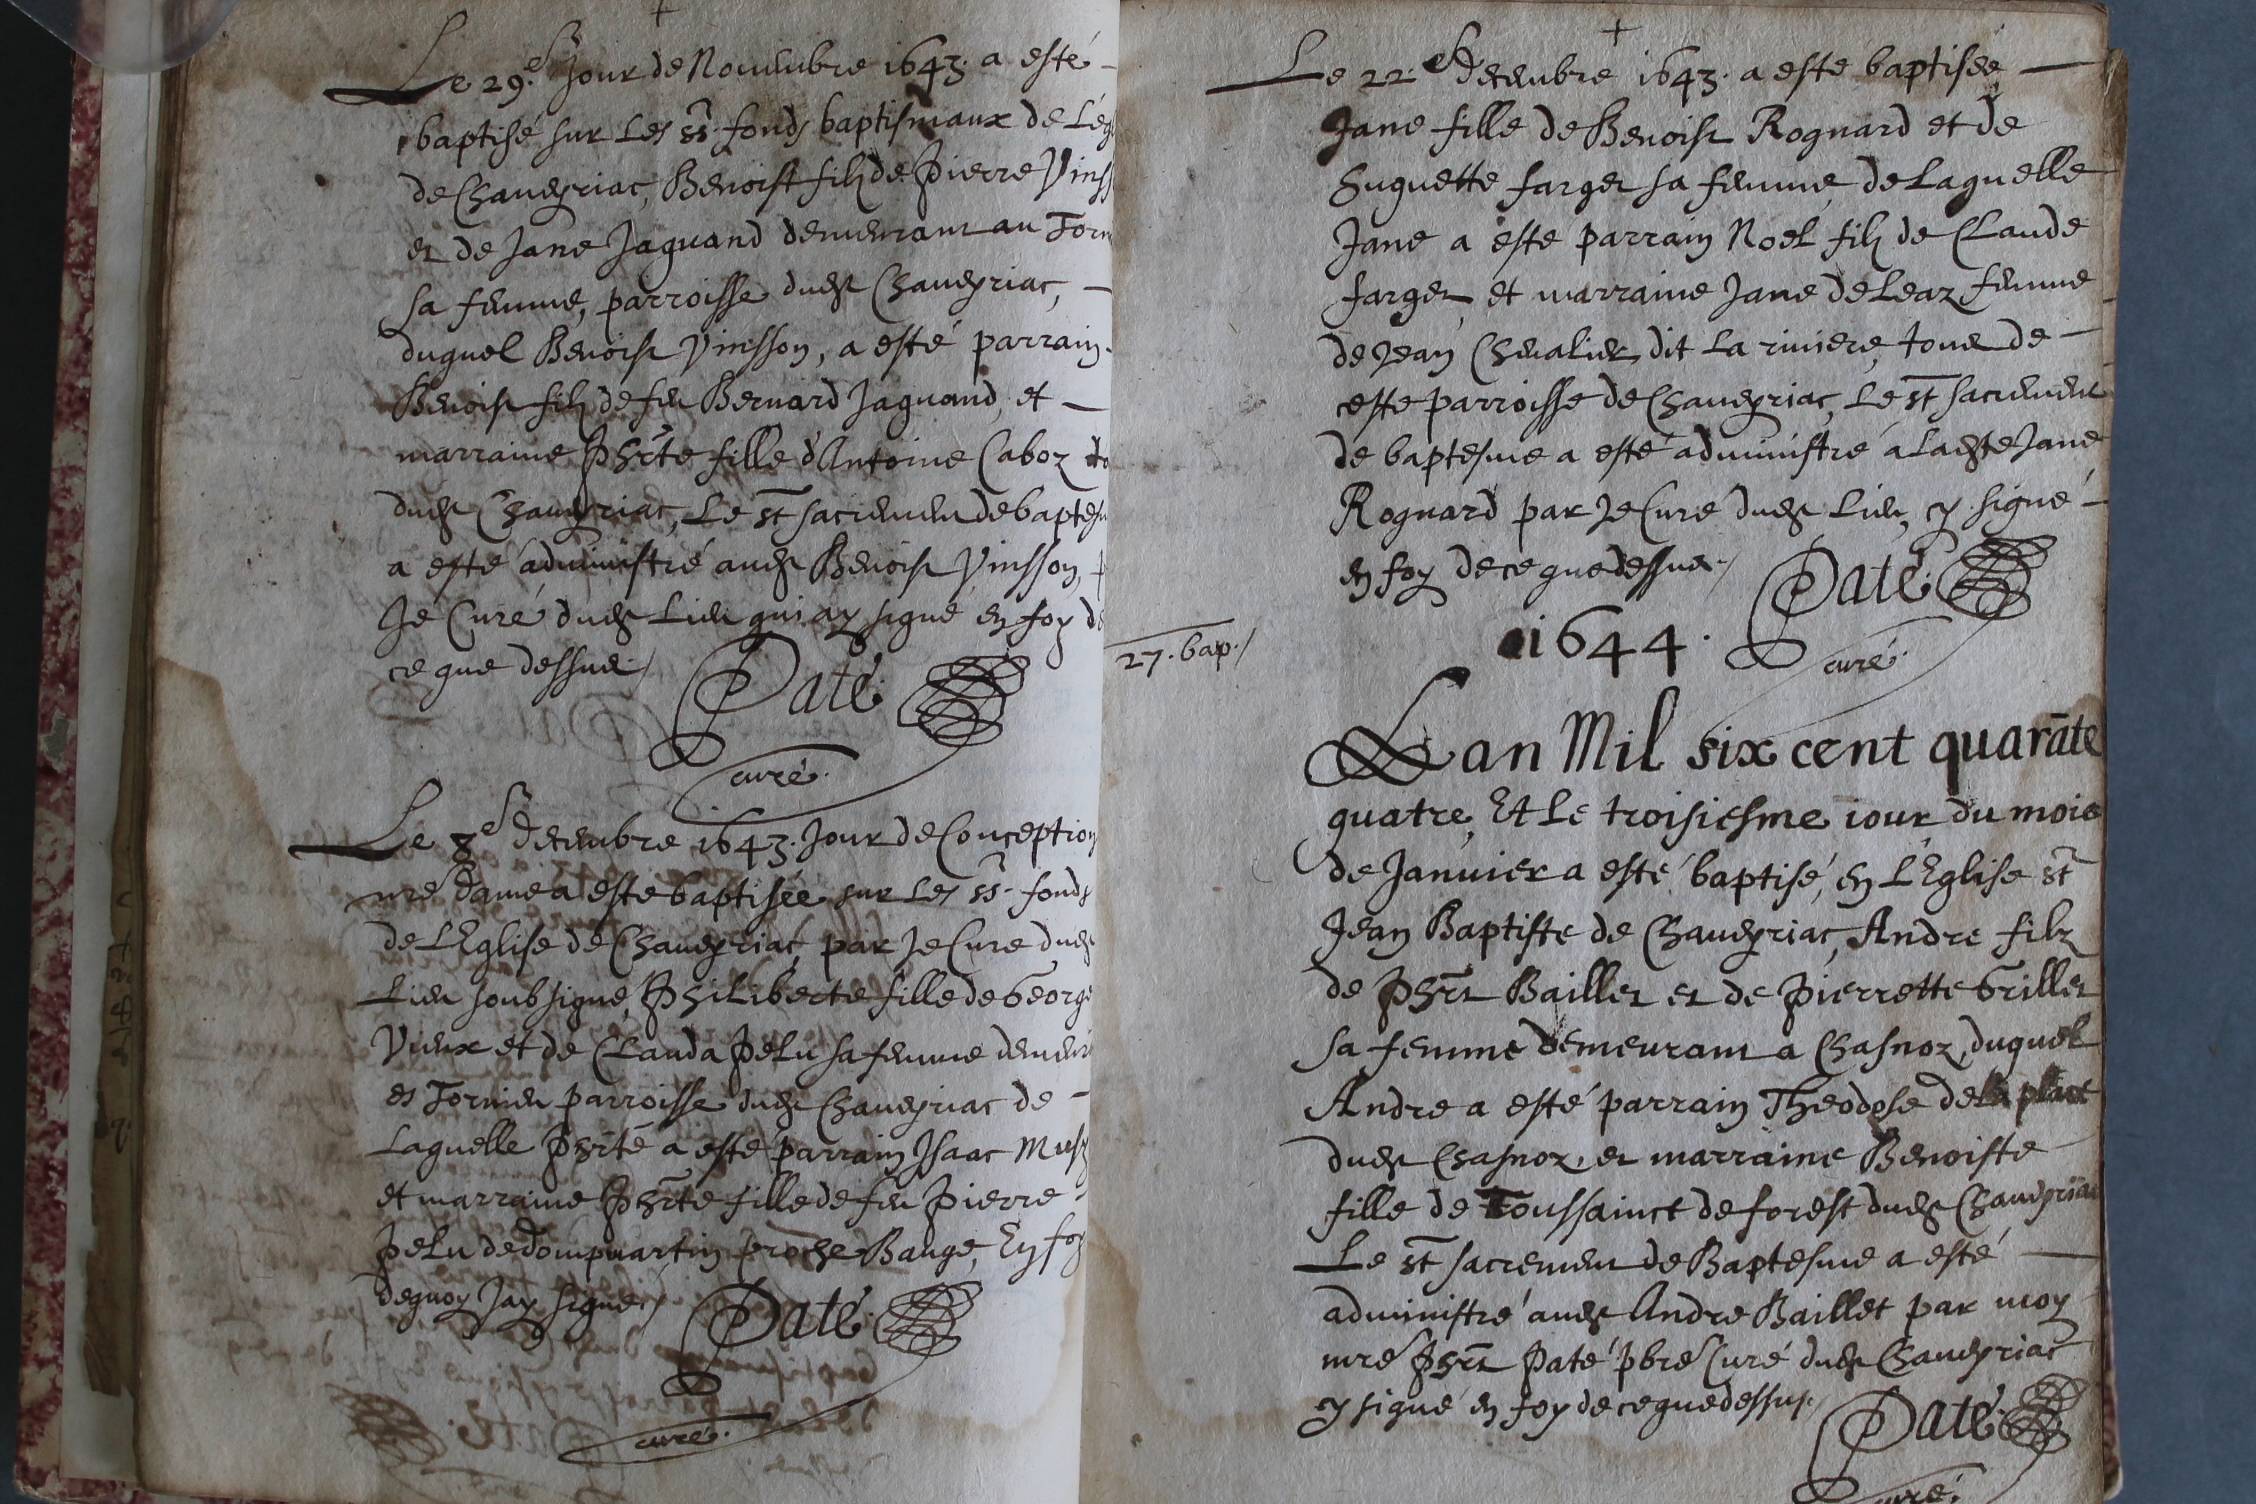 +
Le 29.e Jour de Novembre 1643. a esté
baptisé sur Les SS. fonds baptismaux de L'ég
de Chaveyriac, Benoist filz de Pierre Vinss
et de Jane Jaguand demeurant au Torn
sa femme, parroisse dudt Chaveyriac,
duquel Benoist Vinsson, a esté parrain
Benoist filz de feu Bernard Jaguand, et
marraine Phrte fille d'Antoine Caboz
dudt Chaveyriac, Le St sacrement de baptesm
a esté administré audt Benoist Vinsson,
Je Curé dudt Lieu qui ay signé en foy de
ce que dessus./
Paté
curé.
Le 8e Decembre 1643. Jour de Conception
nre dame a esté baptisée sur Les SS. fonds
de L'Eglise de Chaveyriac, par Je Curé dudt
Lieu soubsigné, Philiberte fille de George
Vieux et de Clauda Pelu sa femme demeur
es Tornieu parroisse dudt Chaveyriac de
Laquelle Phrte a esté parrain Isaac
et marraine Phrte fille de feu Pierre
Pelu de dompmartin proche Bauge, En foy
dequoy Jay signé./
Paté
curé.
+
Le 22e decembre 1643. a esté baptisée
Jane fille de Benoist Rognard et de
Huguette farget sa femme, de Laquelle
Jane a esté parrain Noel filz de Claude
farget, et marraine Jane deLeaz femme
de Jean Chevalier dit La riviere, tous de
ceste parroisse de Chaveyriac, Le St sacrement
de baptesme a esté administré a Ladte Jane
Rognard par Je Curé dudt Lieu, cy signé
en foy de ce que dessus./
Paté
curé.
1644.
27. bap./
Lan Mil six cent quarāte
quatre, Et Le troisiesme iour du mois
de Janvier a esté baptisé, en L'Eglise St
Jean Baptiste de Chaveyriac, Andre filz
de Phrt Baillet et de Pierrette Grillet
sa femme demeurant a Chasnoz, duquel
Andre a esté parrain Theodose dela place
dudt Chasnoz, et marraine Benoiste
fille de Toussainct de forest dudt Chaveyriac
Le St sacrement de Baptesme a esté
administré audt Andre Baillet par moy
mre Phrt Paté pbre Curé dudt Chaveyriac
cy signé en foy de ce que dessus./
Paté
curé.